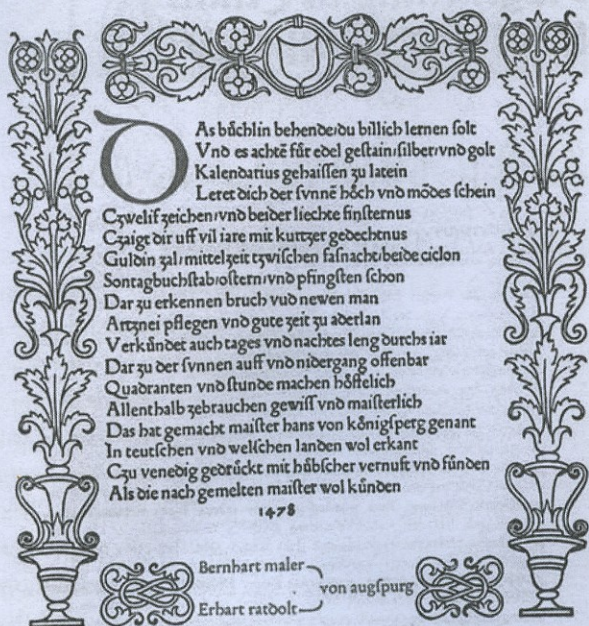 Das bůchlin behende du billich lernen solt
Vnd es achtē fůr edel gestain silber vnd golt
Kalendarius gehaissen zu latein
Leret dich der sunnē hőch vnd mődes schein
Czwelif zeichen vnd beider liechte finsternus
Czaigt dir uff vil iare mit kurtzer gedechtnus
Guldin zal mittel zeit tzwischen fasnacht beide ciclon
Sontagbuchstab ostern vnd pfingsten schon
Dar zu erkennen bruch vud newen man
Artznei pflegen vnd gute zeit zu aderlan
Verkůndet auch tages vnd nachtes leng durchs iar
Dar zu der sunnen auff vnd nidergang offenbar
Quadranten vnd stunde machen hőffelich
Allenthalb zebrauchen gewiss vnd maisterlich
Das hat gemacht maister hans von kőnigsperg genant
In teutschen vnd welschen landen wol erkant
Czu venedig gedrůckt mit hůbscher vernuft vnd fůnden
Als die nach gemelten maister wol kůnden
1478
Bernhart maler
von augspurg
Erhart ratdolt